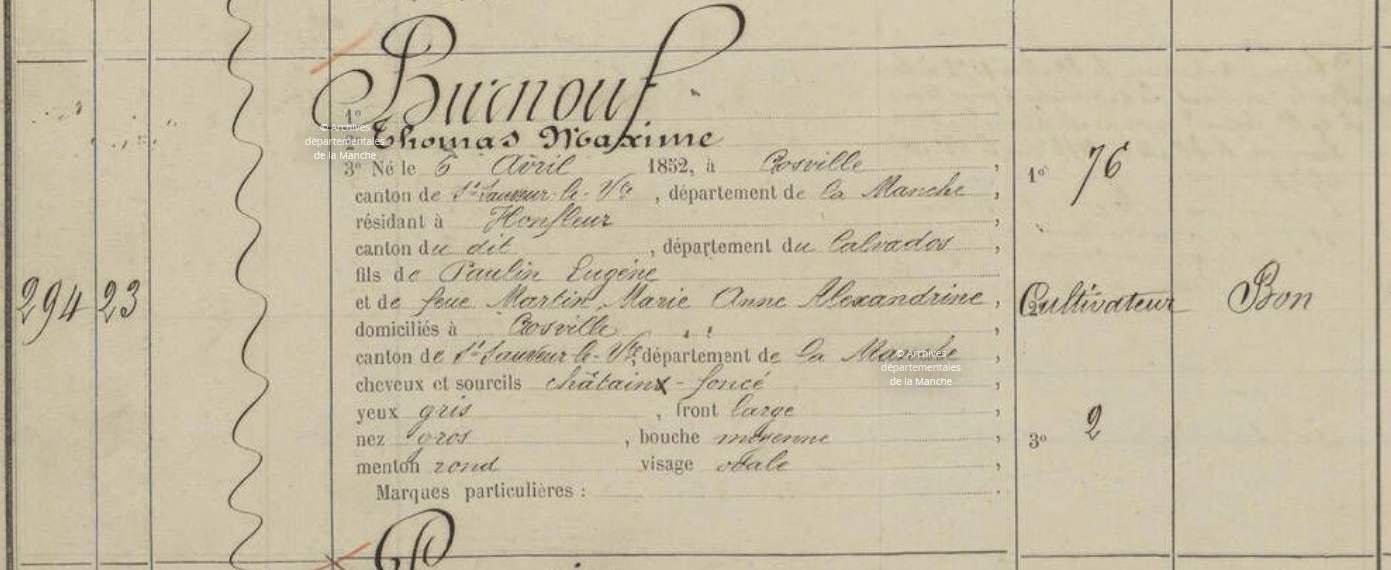 Burnouf
1°
Thomas Maxime
3° Né le 6 Avril 1852, à Crosville,
canton de St Sauveur-le-Vte, département de la Manche,
résidant à Honfleur,
canton du dit, département du Calvados,
fils de Paulin Eugène
et de feue Martin Marie Anne Alexandrine,
domiciliés à Crosville,
canton de St Sauveur-le-Vte, département de La Manche,
cheveux et sourcils châtain - foncé,
yeux gris, front large,
nez gros, bouche moyenne,
menton rond visage ovale,
Marques particulières :
294
23
1° 76
Cultivateur
3° 2
Bon
© Archives
départementales
de la Manche
© Archives
départementales
de la Manche